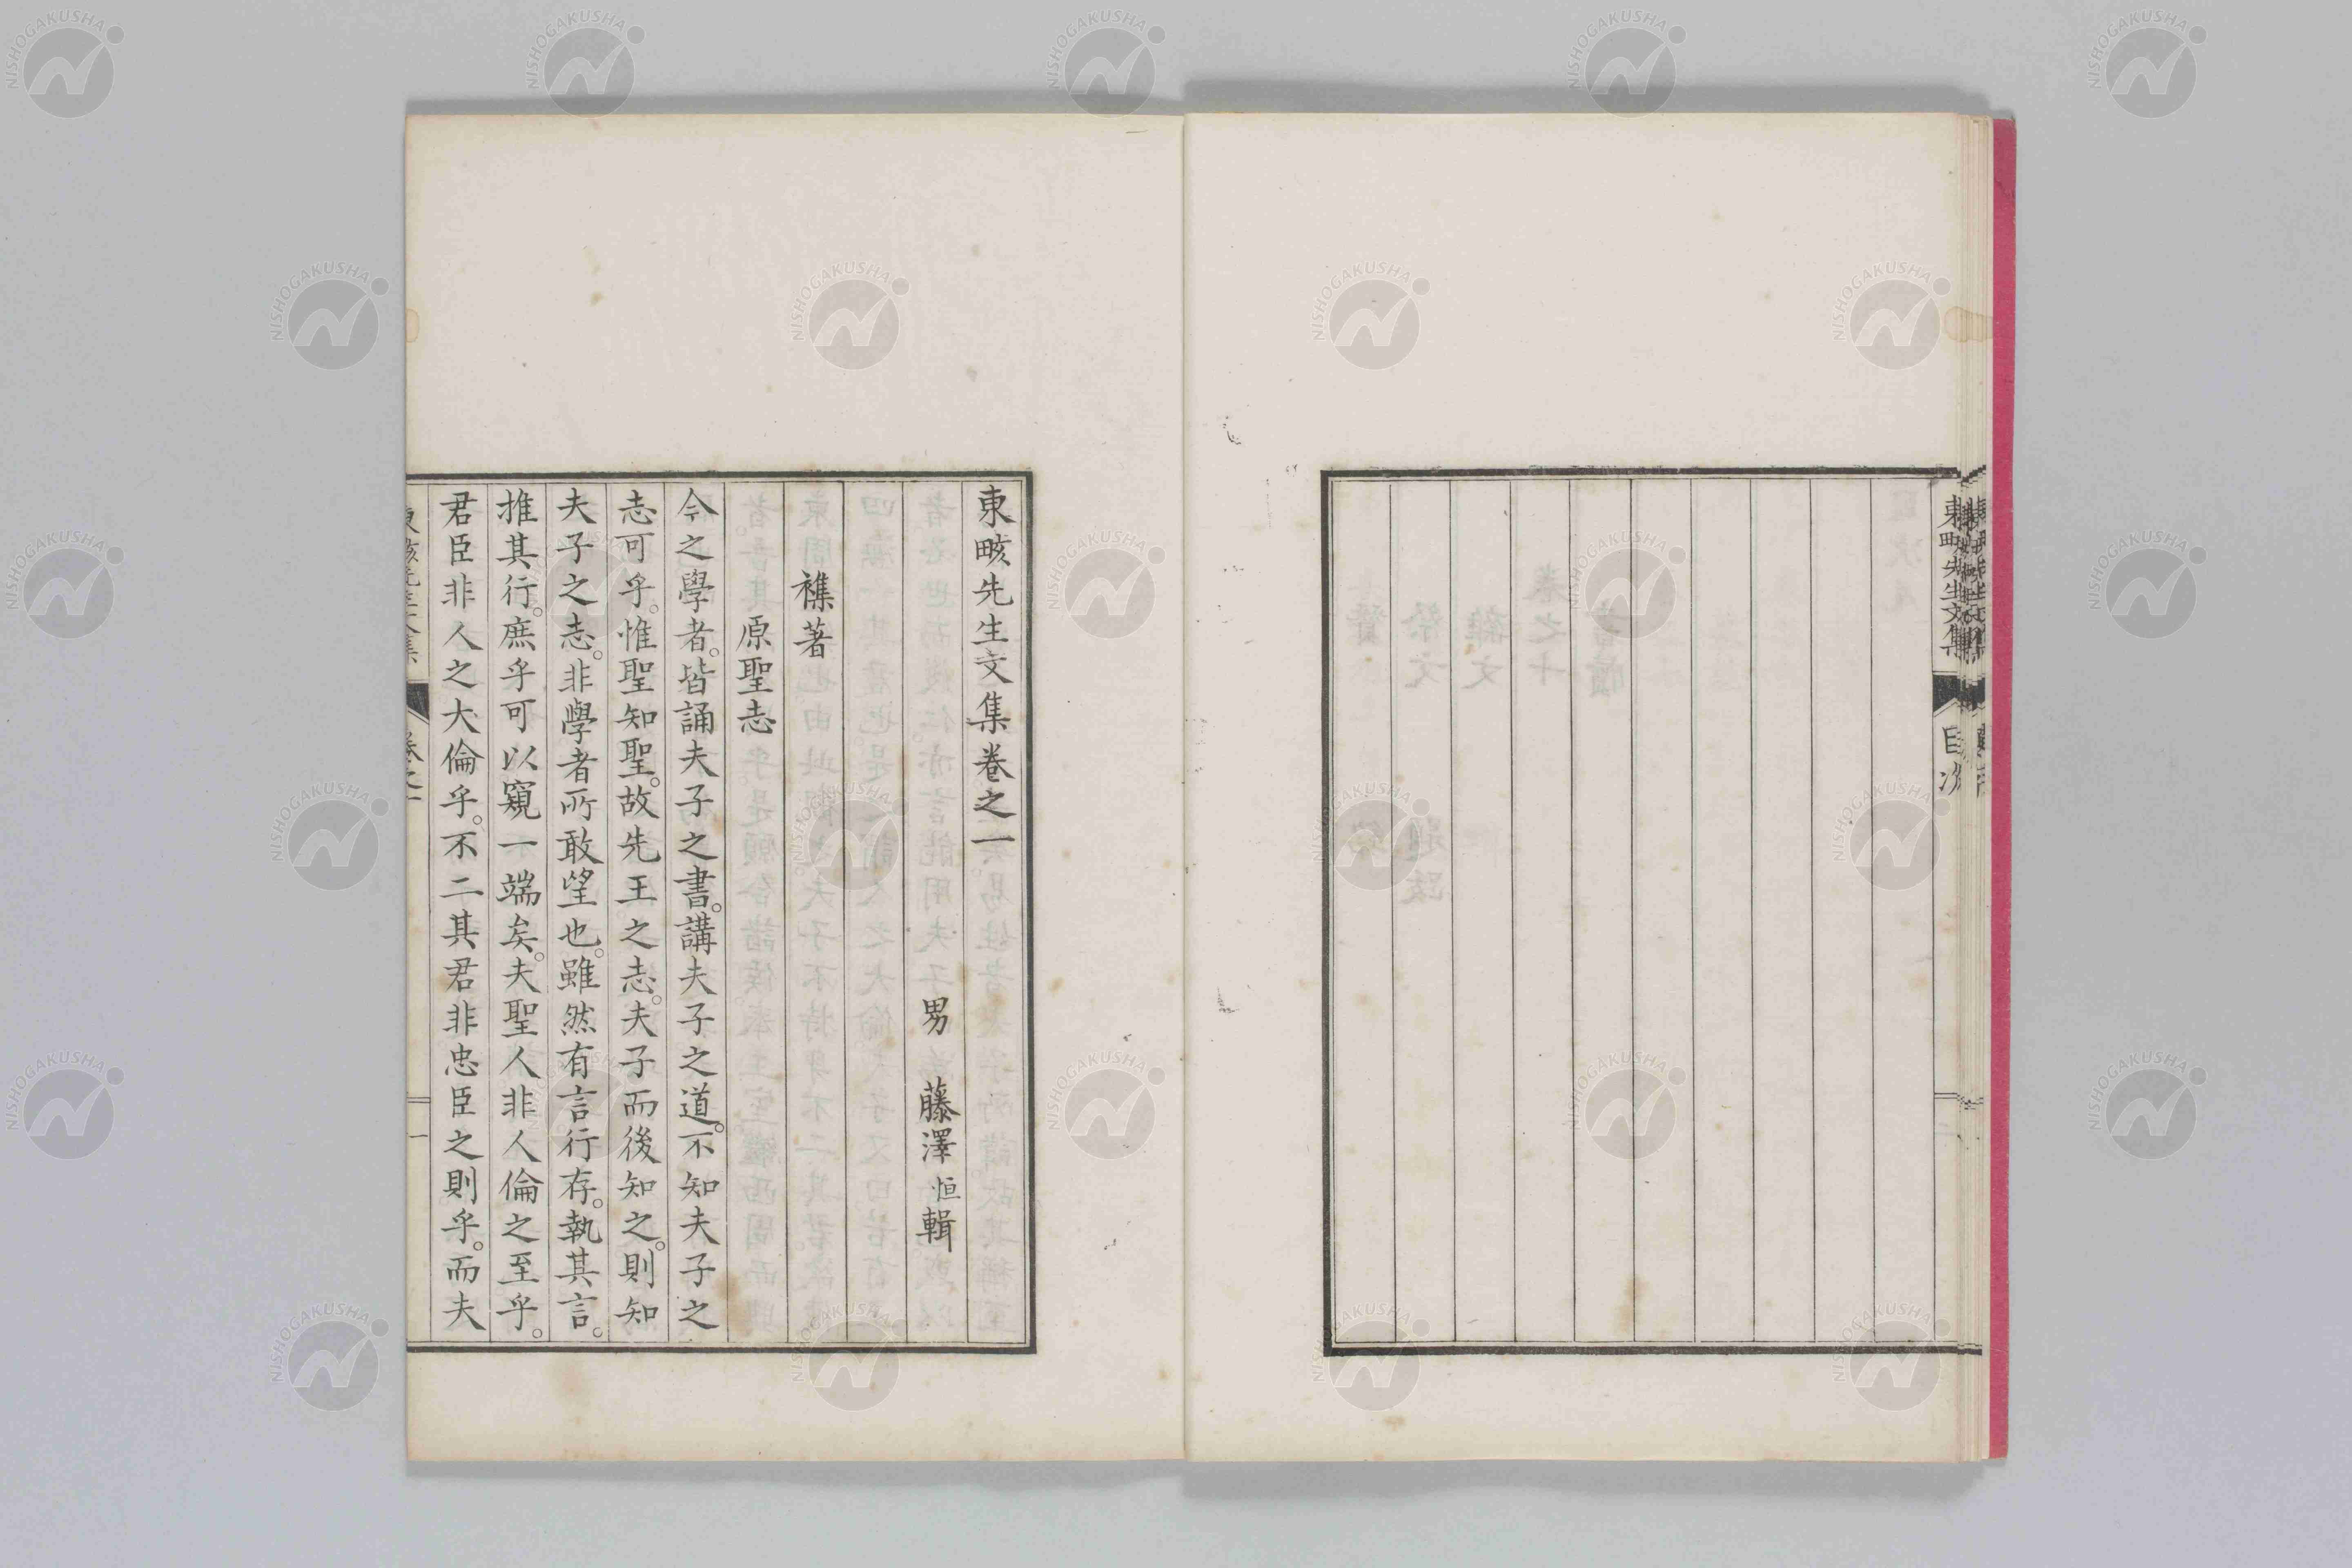 東畡先生文集
目次
東畡先生文集卷之一
男 藤澤恒輯
襍著
原聖志
今之學者。皆誦夫子之書。講夫子之道。不知夫子之
志可乎。惟聖知聖。故先王之志。夫子而後知之。則知
夫子之志。非學者所敢望也。雖然有言行存。執其言。
推其行。庶乎可以窺一端矣。夫聖人非人倫之至乎。
君臣非人之大倫乎。不二其君非忠臣之則乎。而夫
東畡先生文集
卷之一
一